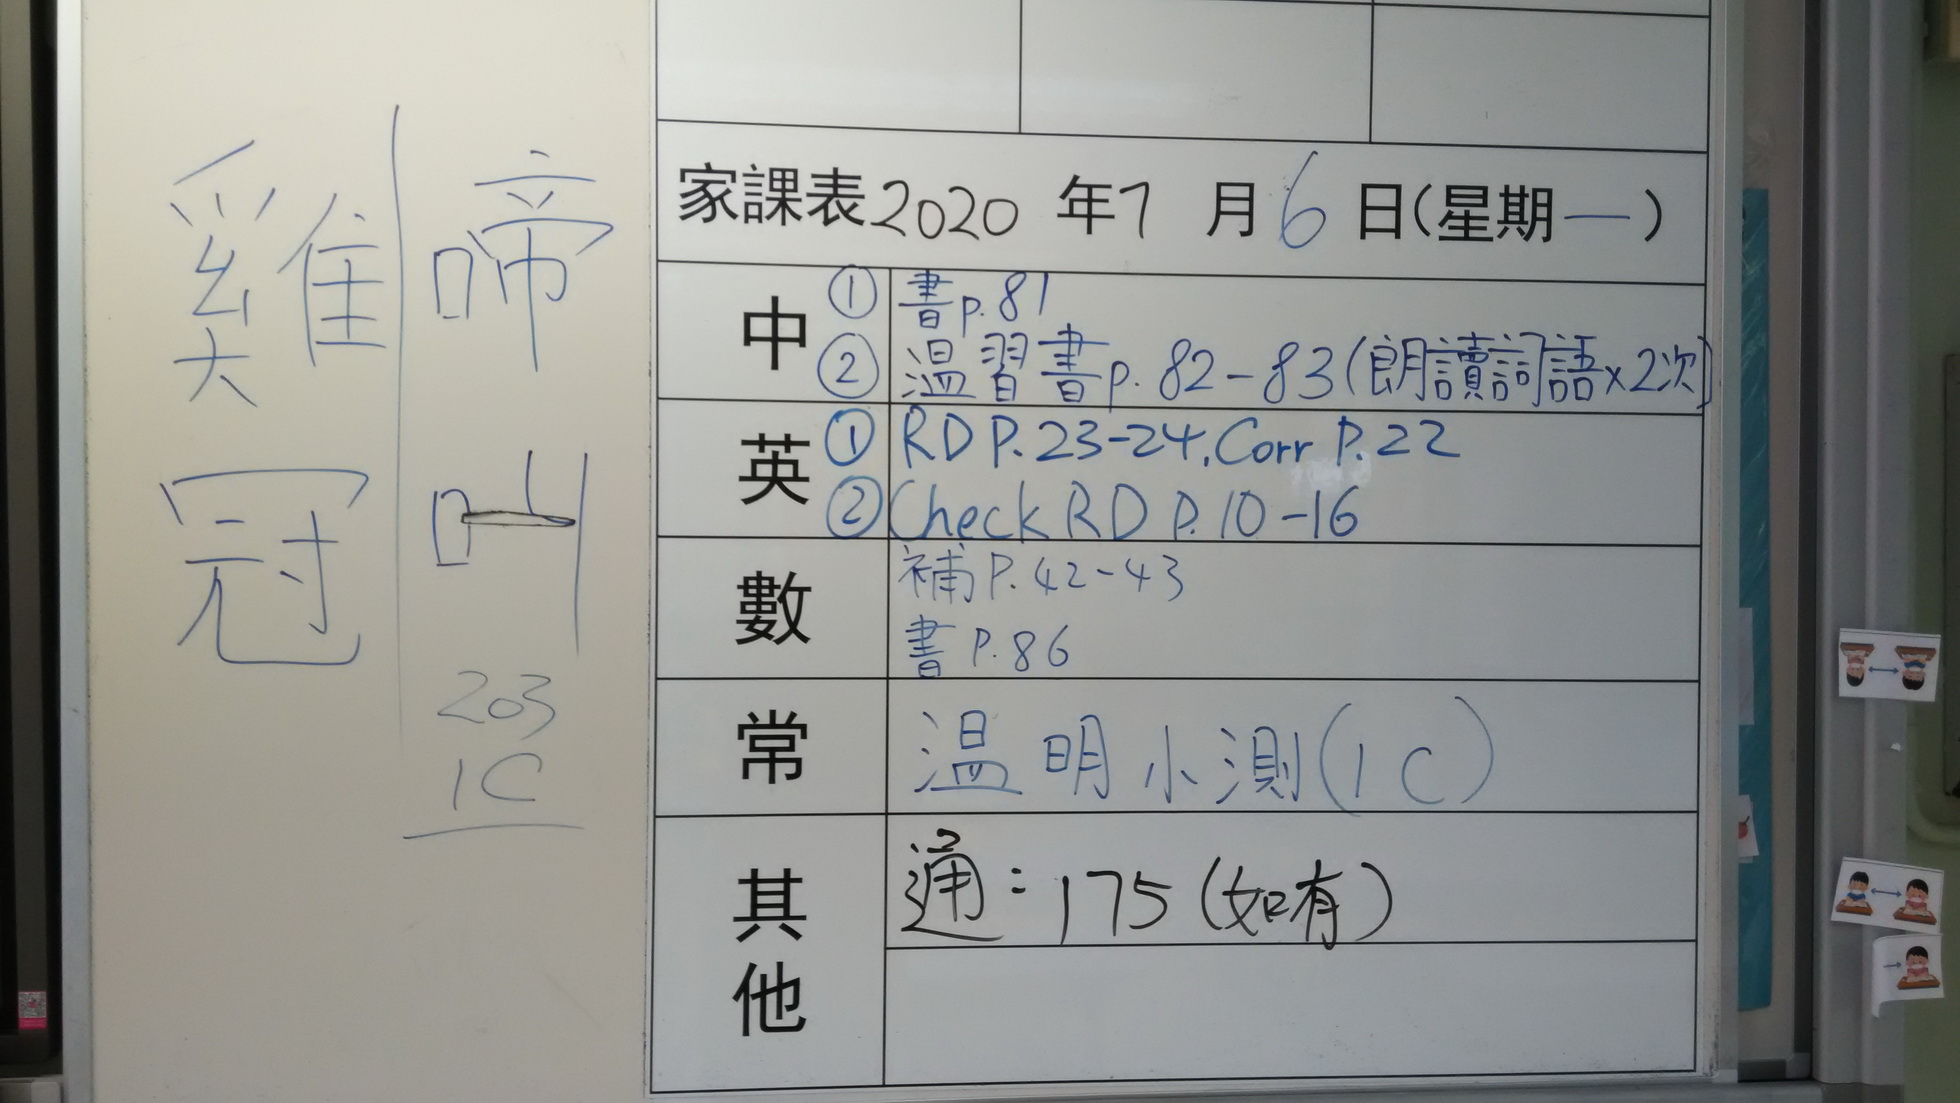 雞冠
啼叫
203
1C
家課表2020 年7 月6 日(星期一)
中 ① 書p.81
② 溫習書p.82-83(朗讀詞語x2次)
英 ① RD P.23-24,Corr P.22
② Check RD P.10-16
數 補P.42-43
書 P.86
常 溫明小測(1C)
其他 通:175(如有)